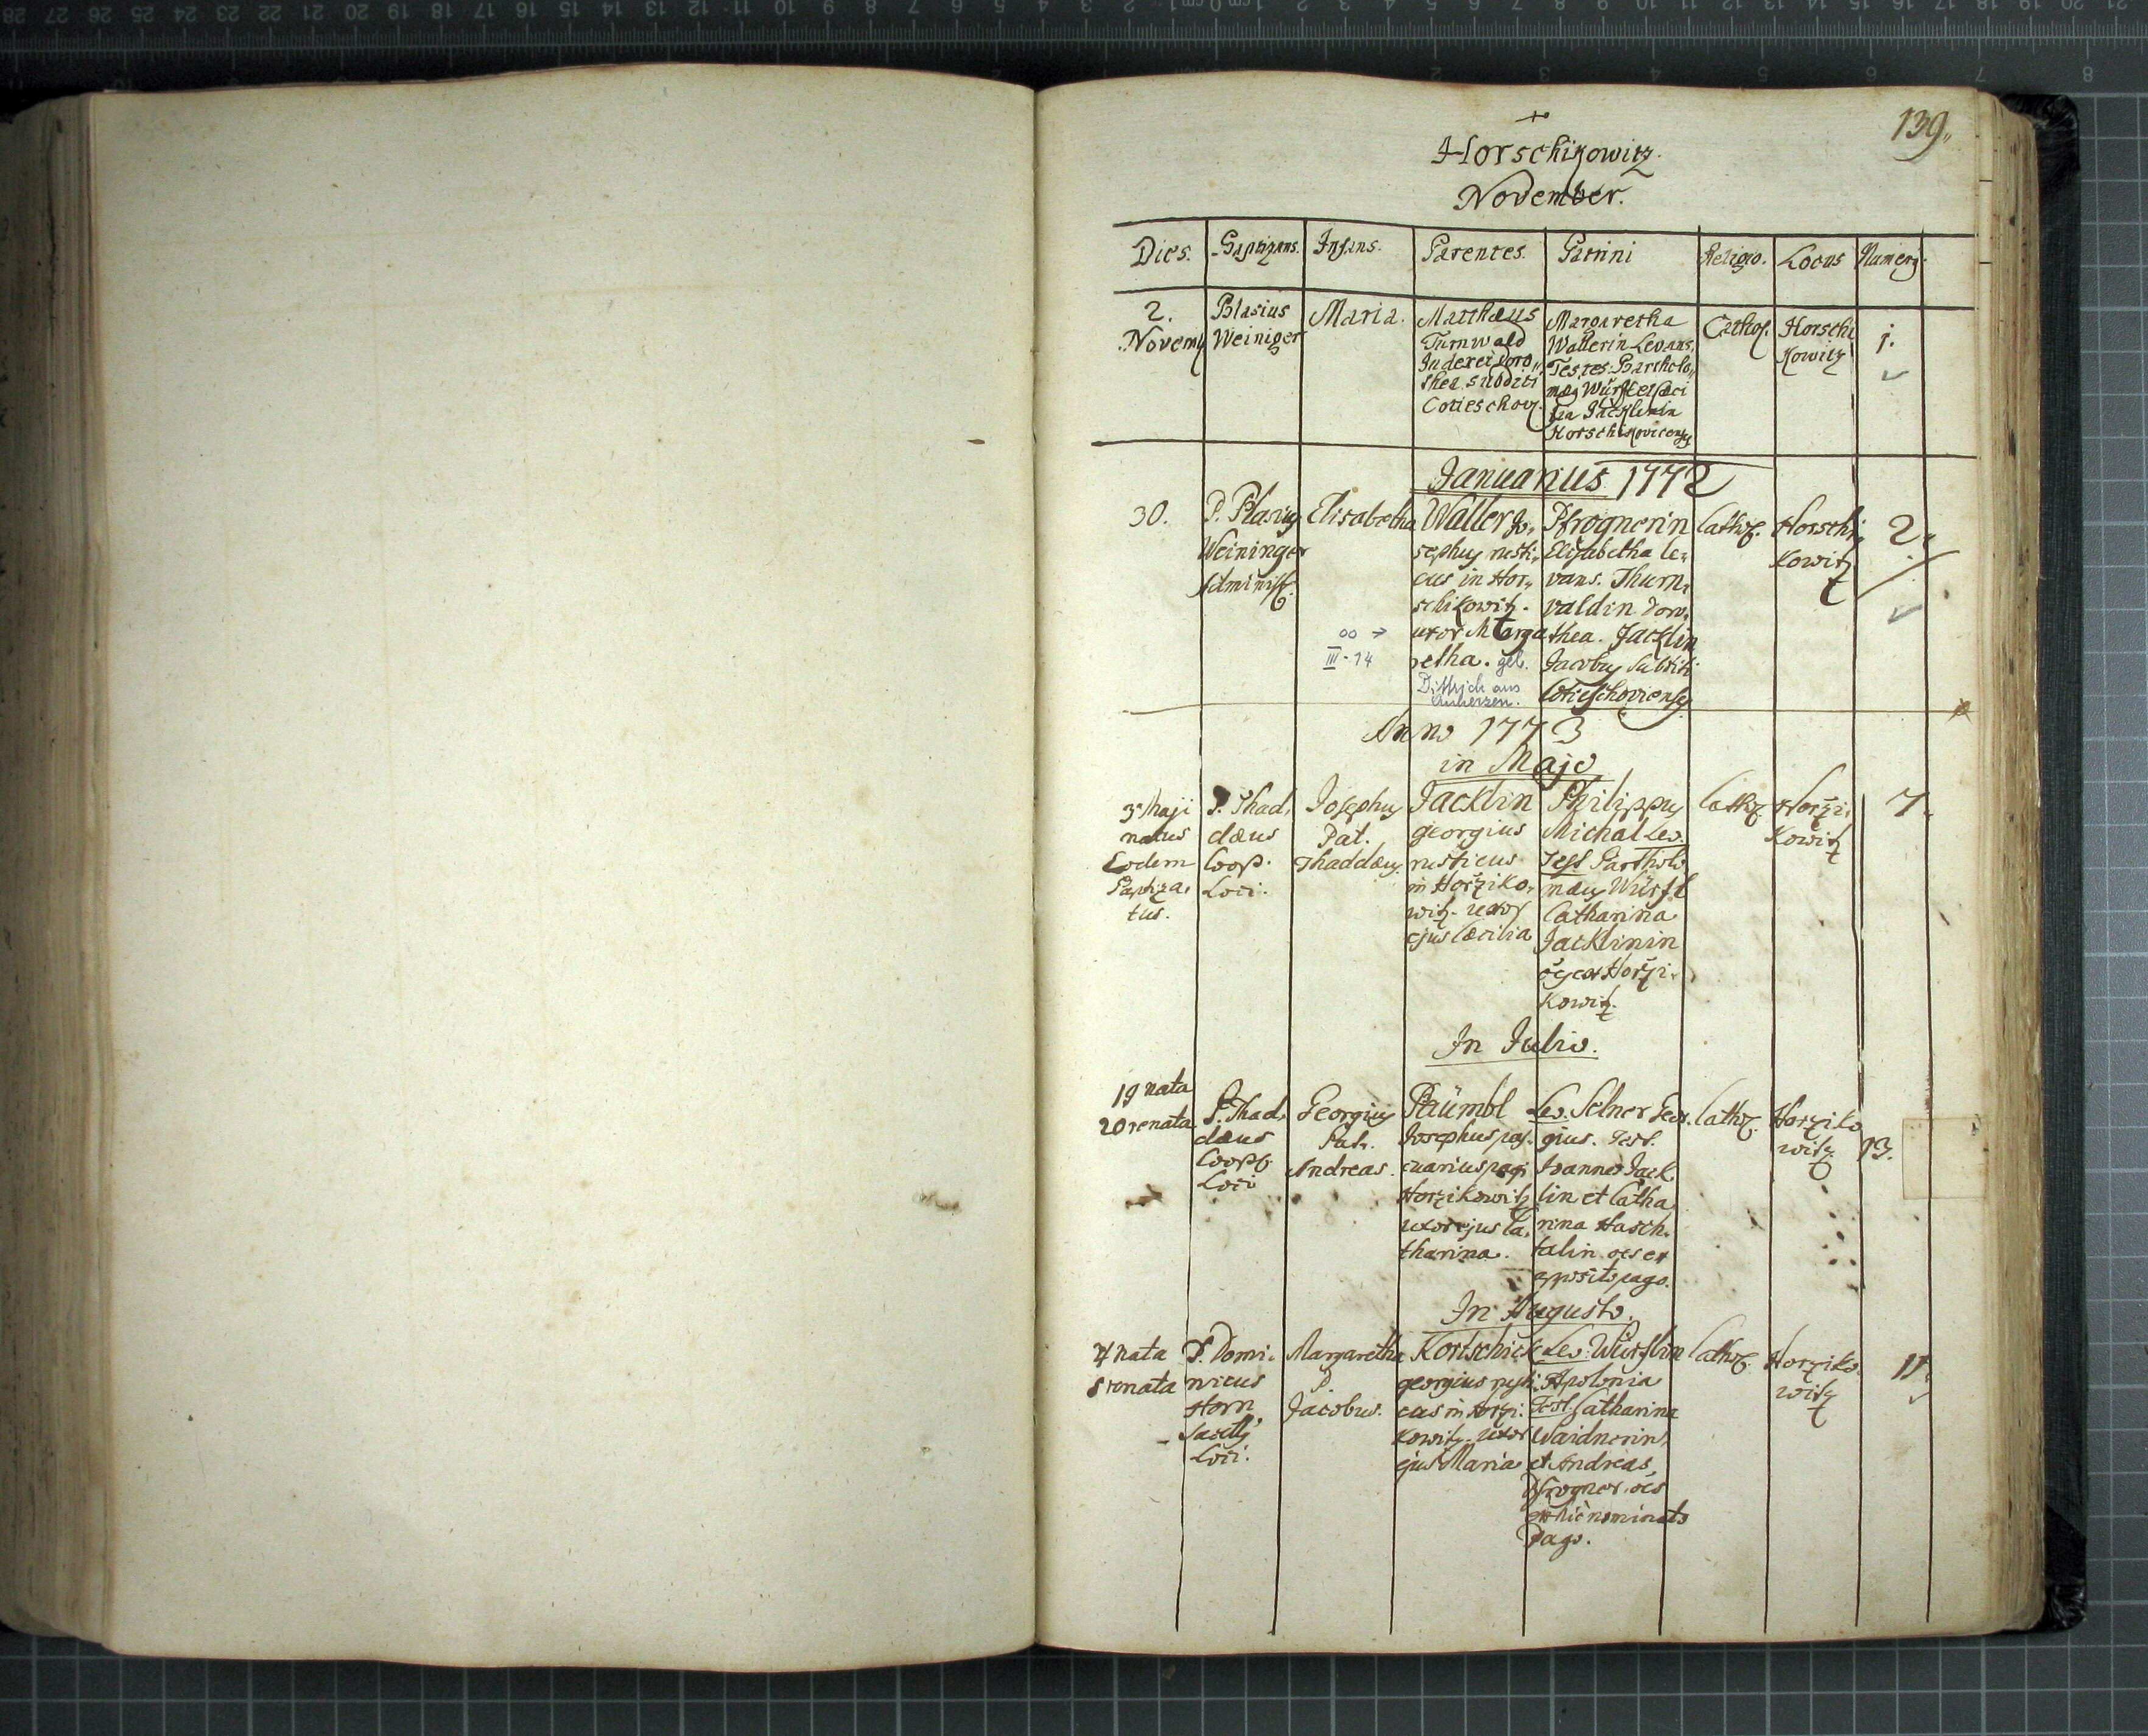 139.
Horschikowitz.
November.
Dies. Baptizans. Infans. Parentes. Patrini Religio. Locus Numerg.
2.
Novemb
Blasius
Weiniger
Maria.
Matthæus
Turnwald
Doro„
thea subditi
Margaretha
Wallerin Levans.
Testes Bartholo„
Horschikovicens
Cathol.
Horschi
kowitz
1.
Januarius 1772
30.
P. Blasiy
Weininger
Administ.
Elisabetha
Waller Jo„
sephus rusti„
cus in Hor„
schikowitz.
uxor Marga
retha. geb.
Dittrich aus
Auherzen.
oo →
III-14
Pfrognerin
Elisabetha le„
vans. Thurn„
valdin Doro„
thea. Jacklin
Jacobus Subditi
Cathol.
Horschi„
kowitz
2.
Anno 1773
in Majo
3 Maji
natus
Eodem
Baptiza„
tus.
P. Thad„
dæus
Coop.
Loci.
Josephus
Pat.
Thaddæus.
Jacklin
georgius
rusticus
in Horziko„
witz. uxor
ejus Cæcilia
Philippus
Michal Lev.
Test. Bartholo
mæus Würfl
Catharina
Jacklinin
Horzi„
kowitz.
Cathol.
Horzi„
kowitz
7.
In Julio.
19 nata
20 renata
P. Thad„
dæus
Coop.
Loci
Georgius
Pat.
Andreas.
Päümbl
Josephus
Horzikowitz
uxor ejus Ca„
tharina.
Lev. Selner Geor„
gius. Test.
Joannes Jack
lin et Catha
rina Hasch„
talin oes ex
pago.
Cathol.
Horziko
witz.
13.
In Augusto.
4 nata
5 renata
P. Domi„
nicus
Horn
Loci.
Margaretha
P
Jacobus.
Kortschick
georgius rusti„
cus in Horzi„
kowitz. uxor
ejus Maria
Lev. Würflin
Apolonia
Test. Catharina
Waidnerin
et Andreas
Pfrogner. oes
ex hic nominato
Pago.
Cathol.
Horziko„
witz
11.